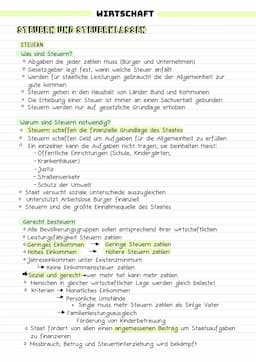 WIRTSCHAFT
STEUERN UND STEUERKLASSEN
STEUERN
Was sind Steuern?
Abgaben die jeder zahlen muss (Bürger und Unternehmen)
Gesetzgeber legt fest, wann welche Steuer anfällt
Werden für staatliche Leistungen gebraucht die der Allgemeinheit zur
gute kommen
Steuern gehen in den Haushalt von Länder Bund und Kommunen
Die Erhebung einer Steuer ist immer an einen Sachverhalt gebunden
Steuern werden nur auf gesetzliche Grundlage erhoben
Warum sind Steuern notwendig?
Steuern schaffen die finanzielle Grundlage des Staates
Steuern schaffen Geld um Aufgaben für die Allgemeinheit zu erfüllen
Ein einzelner kann die Aufgaben nicht tragen, sie beinhalten meist:
-Öffentliche Einrichtungen (Schule, Kindergärten,
-Krankenhäuser)
-Justiz
-Straßenverkehr
-Schutz der Umwelt
Staat versucht soziale Unterschiede auszugleichen
Unterstützt Arbeitslose Bürger finanziell
Steuern sind die größte Einnahmequelle des Staates
Gerecht besteuern
Alle Bevölkerungsgruppen sollen entsprechend ihrer wirtschaftlichen
Leistungsfähigkeit Steuern zahlen
Geringes Einkommen → Geringe Steuern zahlen
Hohes Einkommen → Höhere Steuern zahlen
Jahreseinkommen unter Existenzminimum
↳ Keine Einkommensteuer zahlen
→ Sozial und gerecht → wer mehr hat kann mehr zahlen
Menschen in gleicher wirtschaftlicher Lage werden gleich belastet
Kriterien → Monatliches Einkommen
→ Persönliche Umstände
Single muss mehr Steuern zahlen als Single Vater
→ Familienleistungsausgleich
Förderung von Kinderbetreuung
Staat fordert von allen einen angemessenen Beitrag um Staatsaufgaben
zu finanzieren
Missbrauch, Betrug und Steuerhinterziehung wird bekämpft